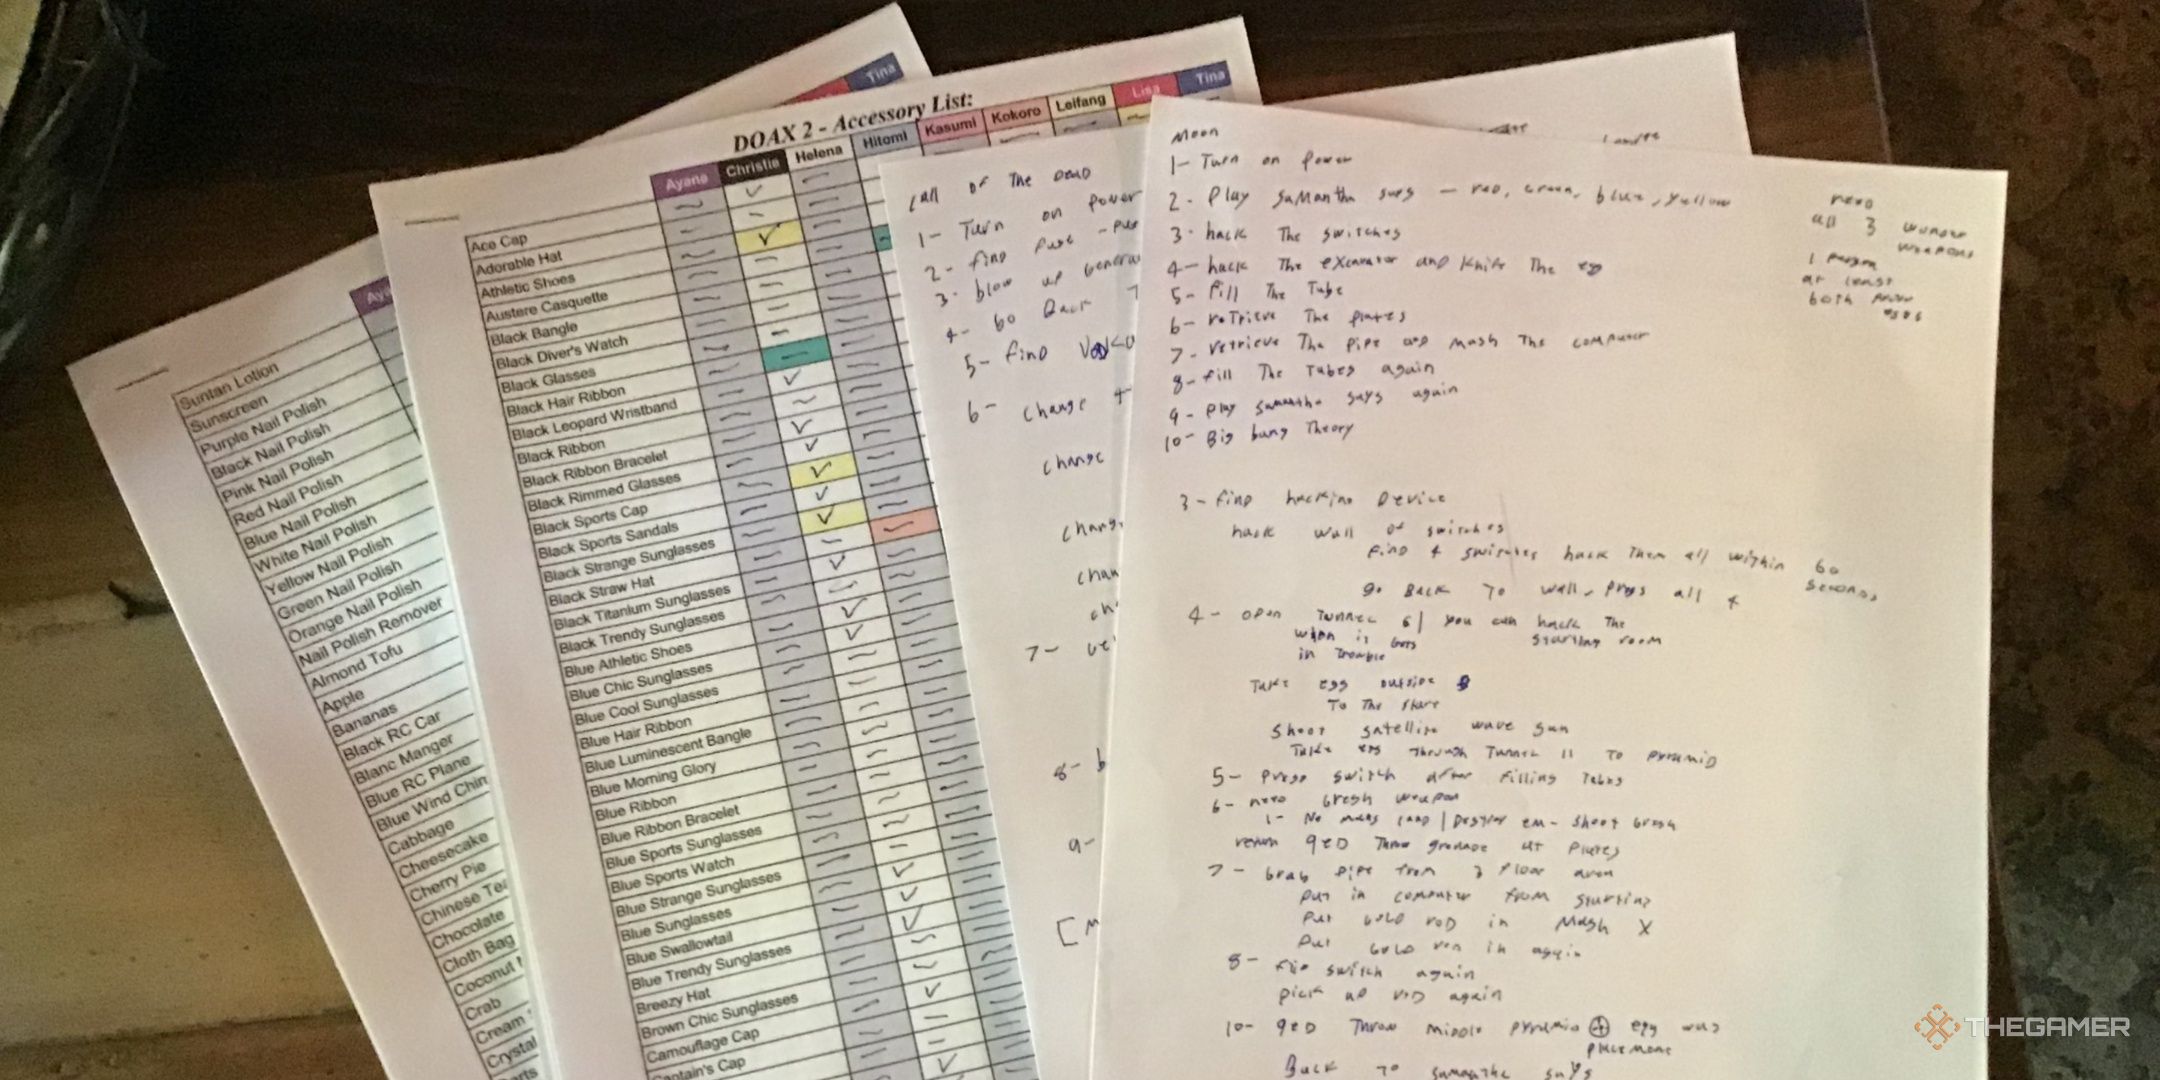 Tina
Suntan Lotion
Sunscreen
Purple Nail Polish
Black Nail Polish
Pink Nail Polish
Red Nail Polish
Blue Nail Polish
White Nail Polish
Yellow Nail Polish
Green Nail Polish
Orange Nail Polish
Nail Polish Remover
Almond Tofu
Apple
Bananas
Black RC Car
Blanc Manger
Blue RC Plane
Blue Wind Chin
Cabbage
Cheesecake
Cherry Pie
Chinese Tea
Chocolate
Cloth Bag
Coconut
Crab
Cream
Crystal
DOAX 2 - Accessory List:
Ayane Christie Helena Hitomi Kasumi Kokoro Leifang Lisa Tina
Ace Cap
Adorable Hat
Athletic Shoes
Austere Casquette
Black Bangle
Black Diver's Watch
Black Glasses
Black Hair Ribbon
Black Leopard Wristband
Black Ribbon
Black Ribbon Bracelet
Black Rimmed Glasses
Black Sports Cap
Black Sports Sandals
Black Strange Sunglasses
Black Straw Hat
Black Titanium Sunglasses
Black Trendy Sunglasses
Blue Athletic Shoes
Blue Chic Sunglasses
Blue Cool Sunglasses
Blue Hair Ribbon
Blue Luminescent Bangle
Blue Morning Glory
Blue Ribbon
Blue Ribbon Bracelet
Blue Sports Sunglasses
Blue Sports Watch
Blue Strange Sunglasses
Blue Sunglasses
Blue Swallowtail
Blue Trendy Sunglasses
Breezy Hat
Brown Chic Sunglasses
Camouflage Cap
Captain's Cap
Call of The Dead
1- Turn on power
2- find fuse
3- blow up genera
4- Go Back
5- find
6- change
change
chang
chan
ch
7-
8- b
9-
Moon
1- Turn on power
2- Play Samantha says - red, green, blue, yellow
3- hack The switches
4- hack The excavator and knife The egg
5- fill The Tube
6- retrieve The plates
7- retrieve The pipe and mash The computer
8- fill The Tubes again
9- play samantha says again
10- Big bang Theory
need
all 3 wonder
weapons
1 person
at least
both
3- find hacking Device
hack wall of switches
find 4 switches hack Them all within 60
seconds
go Back To wall, press all 4
4- open Tunnel 6 / you can hack The
when it gets starting room
in Trouble
Take egg outside
To The
shoot satellite wave gun
Take egg Through Tunnel 11 To pyramid
5- Press switch after filling Tubes
6- need Gersh weapon
1- No shoot Gersh
QED Throw grenade at plates
7- Grab pipe from 3 floor area
put in computer from starting
put Gold rod in Mash X
Put Gold rod in again
8- flip switch again
pick up rod again
10- QED Throw middle pyramid egg was
Back To samantha says
THEGAMER